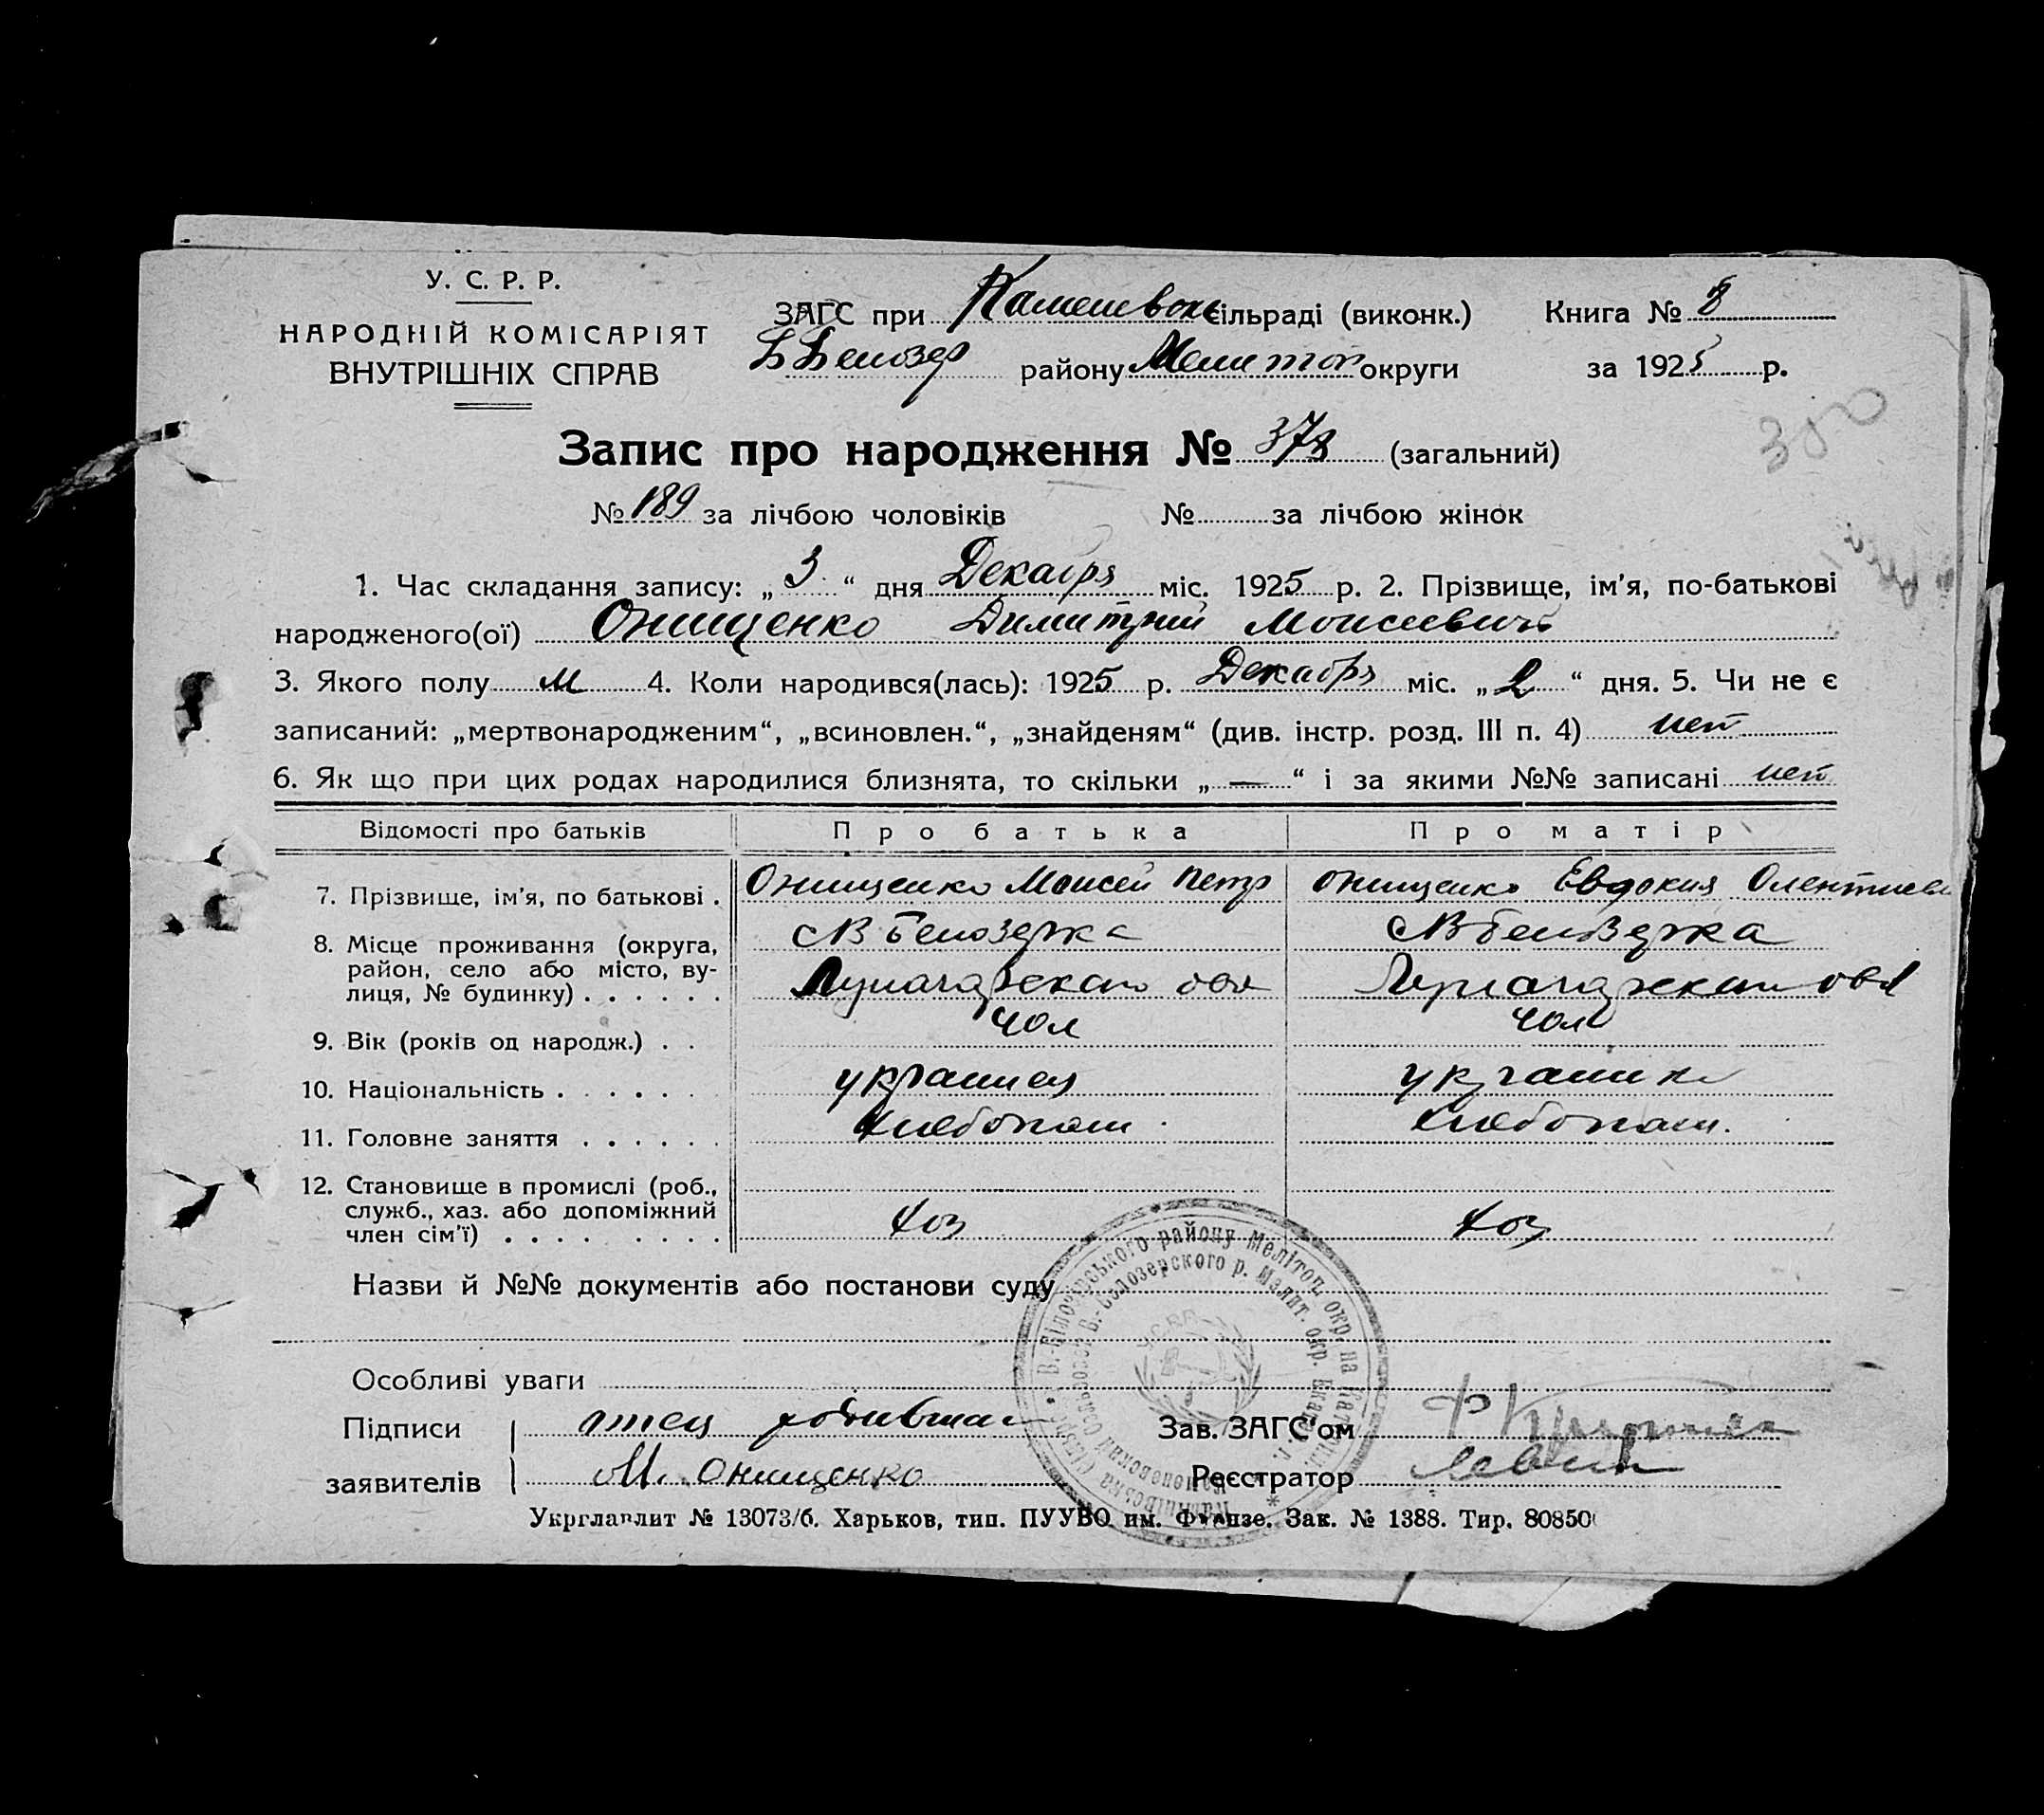 У. С. Р. Р.
НАРОДНІЙ КОМІСАРІЯТ
ВНУТРІШНІХ СПРАВ
ЗАГС при Каменевск сільраді (виконк.) Книга № 8
Б Белозер району Мелитоп округи за 1925 р.
380
Запис про народження № 378 (загальний)
№ 189 за лічбою чоловіків № за лічбою жінок
1. Час складання запису: „ 3 “ дня Декабря міс. 1925 р. 2. Прізвище, ім'я, по-батькові
народженого(ої) Онищенко Димитрий Моисеевичъ
3. Якого полу м 4. Коли народився(лась): 1925 р. Декабря міс. „ 2 “ дня. 5. Чи не є
записаний: „мертвонародженим“, „всиновлен.“, „знайденям“ (див. інстр. розд. III п. 4) нет
6. Як що при цих родах народилися близнята, то скільки „ — “ і за якими №№ записані нет
Відомості про батьків Про батька Про матір
7. Прізвище, ім'я, по батькові . Онищенко Моисей Петр Онищенко Евдокия
8. Місце проживання (округа, с В Белозерка с В Белозерка
район, село або місто, ву-
лиця, № будинку) . . . . . .
9. Вік (років од народж.) . . 40л 40л
10. Національність . . . . . . украинец украинк
11. Головне заняття . . . . . . хлебопаш. хлебопаш.
12. Становище в промислі (роб.,
служб., хаз. або допоміжний
член сім'ї) . . . . . . . . хоз хоз
Назви й №№ документів або постанови суду
Особливі уваги
Підписи отец Зав. ЗАГС'ом
заявителів М. Онищенко Реєстратор
Укрглавлит № 13073/б. Харьков, тип. ПУУВО им. Фрунзе. Зак. № 1388. Тир. 80850